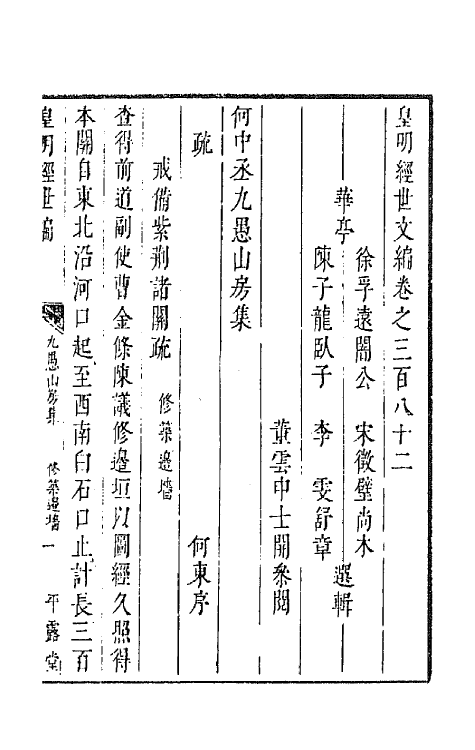 皇明經世文編卷之三百八十二
徐孚遠闇公　宋徵璧尚木
華亭　選輯
陳子龍臥子　李　雯舒章
董雲申士開叅閱
何中丞九愚山房集
疏　何東序
戒備紫荆諸關疏　修築邊墻
查得前道副使曹金條陳議修邊垣以圖經久照得
本關自東北沿河口起至西南白石口止計長三百
皇明經世編　九愚山房集　修築邊墻　一　平露堂